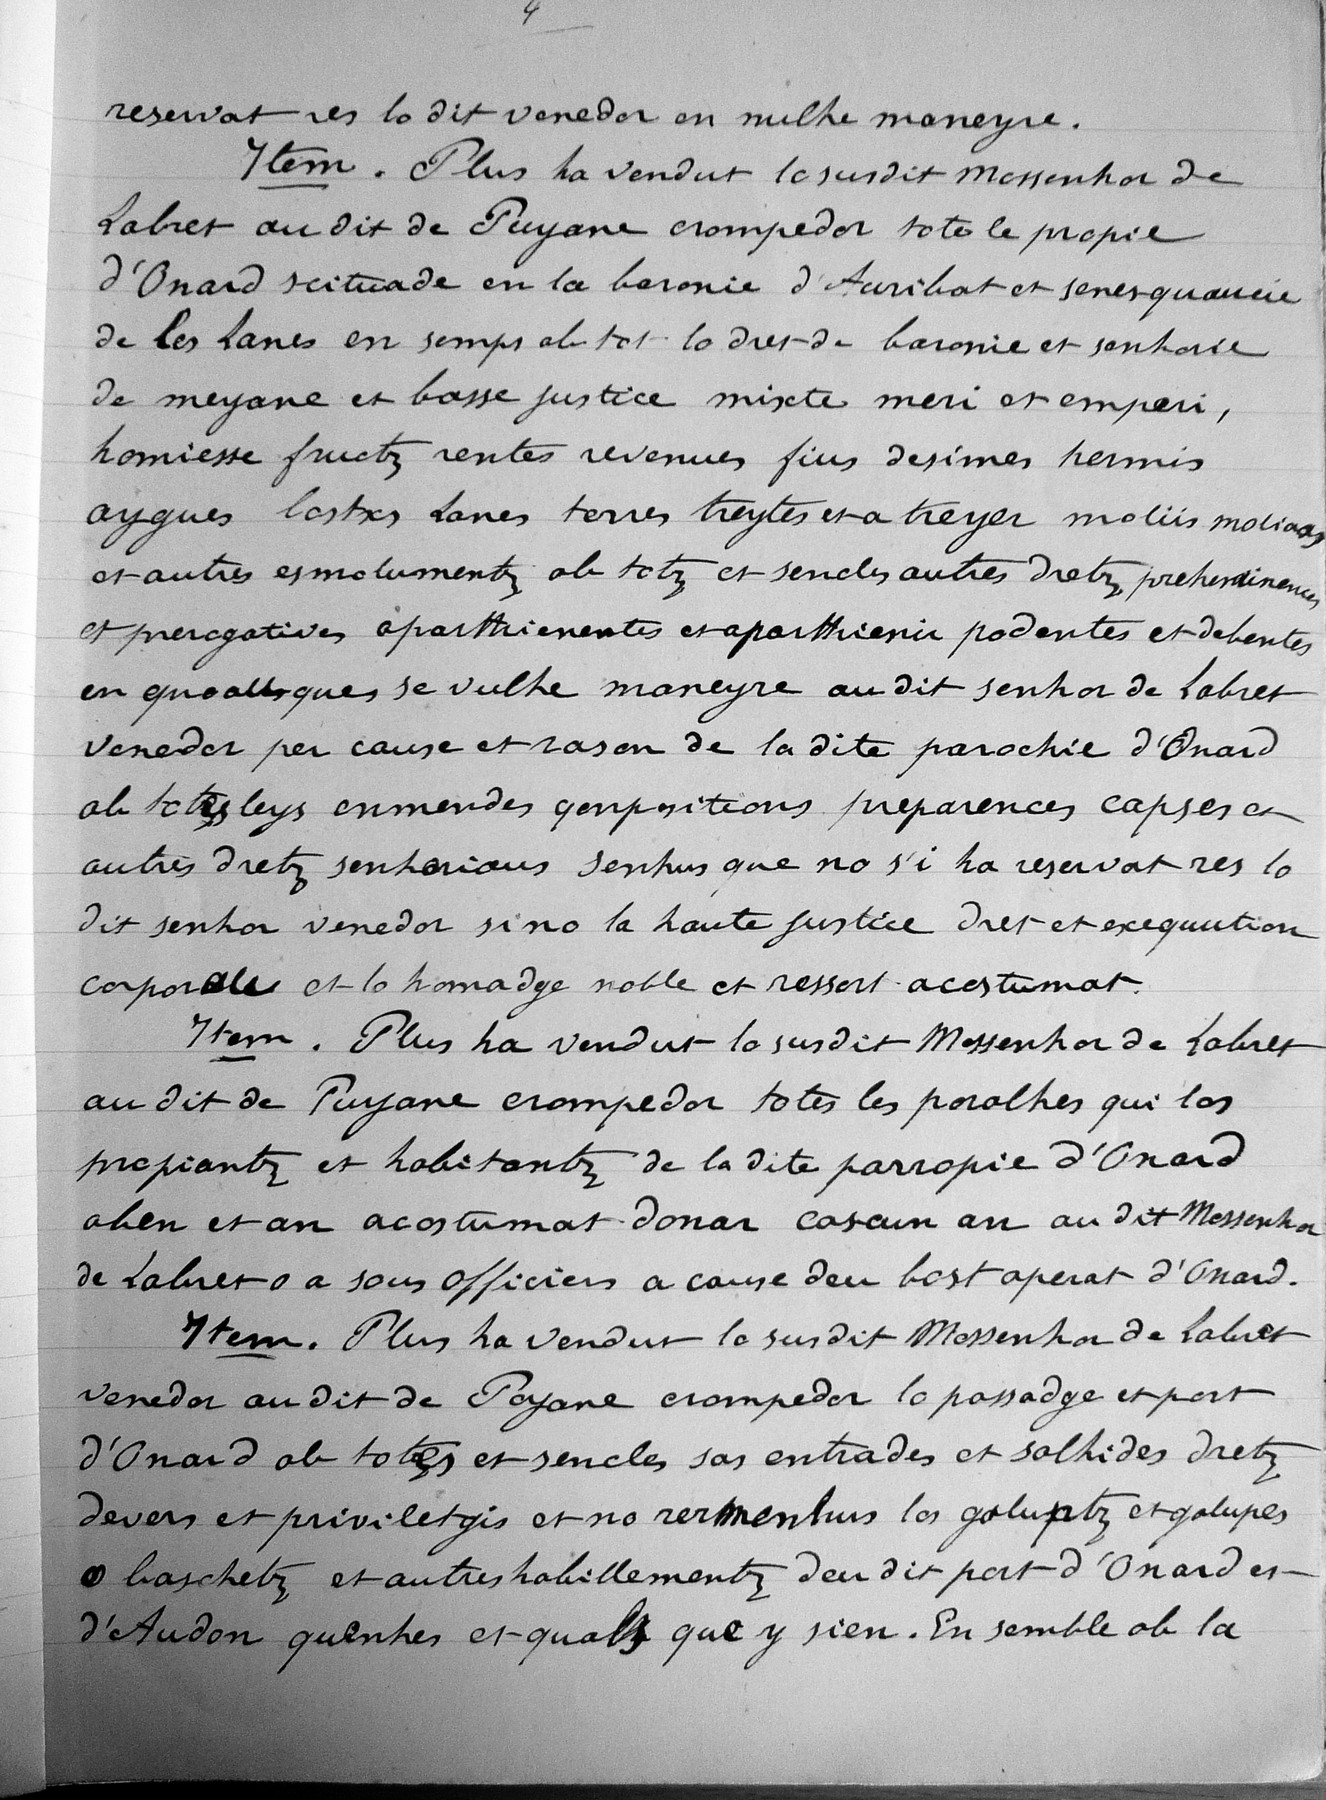 4
reservat res lo dit venedor en nulhe maneyre.
Item. Plus ha vendut lo susdit Mossenhor de
Labret au dit de Puyane crompedor tote le propie
d'Onard scituade en la baronie d'Auribat et senesquaucie
de les Lanes en semps ab tot lo dret de baronie et senhorie
de meyane et basse justice mixte meri et emperi,
homiesse fructz rentes revenues fius desimes hermis
aygues bostxs Lanes terres treytes et a treyer moliis moliaas
et autres esmolumentz ab totz et sencles autres dretz preheminences
et prerogatives aparthienentes et aparthienir podentes et debentes
en quoallsques se vulhe maneyre au dit senhor de Labret
venedor per cause et rason de la dite parochie d'Onard
ab totes leys enmendes qenpositions preparences capses et
autres dretz senhoriaus senhus que no s'i ha reservat res lo
dit senhor venedor sino la haute justice dret et exequution
corporale et lo homadge noble et ressort acostumat.
Item. Plus ha vendut lo susdit Messenhor de Labret
au dit de Puyane crompedor totes les poralhes qui los
propiantz et habitantz de la dite parropie d'Onard
aben et an acostumat donar cascun an au dit Messenhor
de Labret o a sous officiers a cause deu bost aperat d'Onard.
Item. Plus ha vendut lo susdit Messenhor de Labret
venedor au dit de Poyane crompedor lo passadge et port
d'Onard ab totes et sencles sas entrades et salhides dretz
devers et priviletgis et no rermenhus los galuptz et galupes
o baschetz et autres habillementz deu dit port d'Onard et
d'Audon quenhes et quals que y sien. En semble ab la